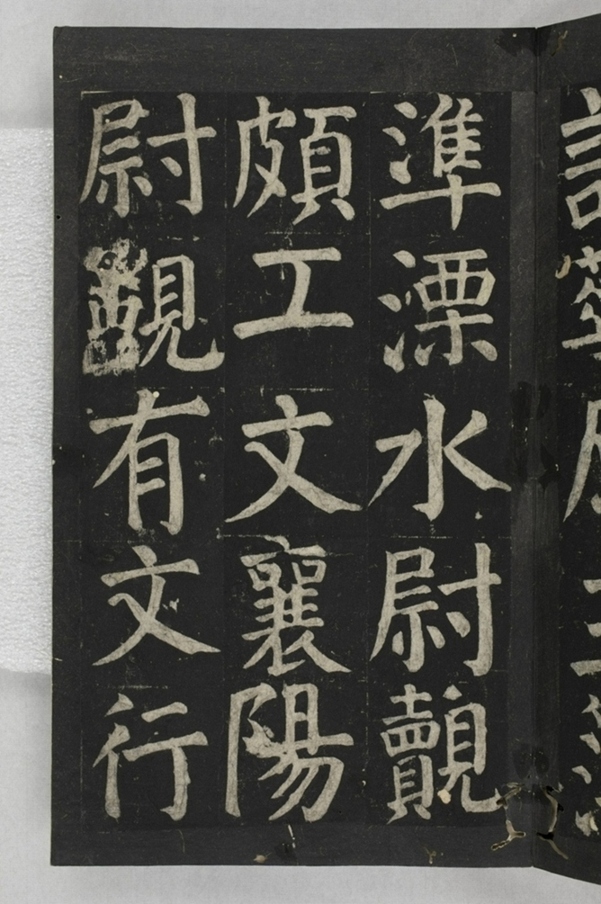 準溧水尉覿
頗工文襄陽
尉有文行